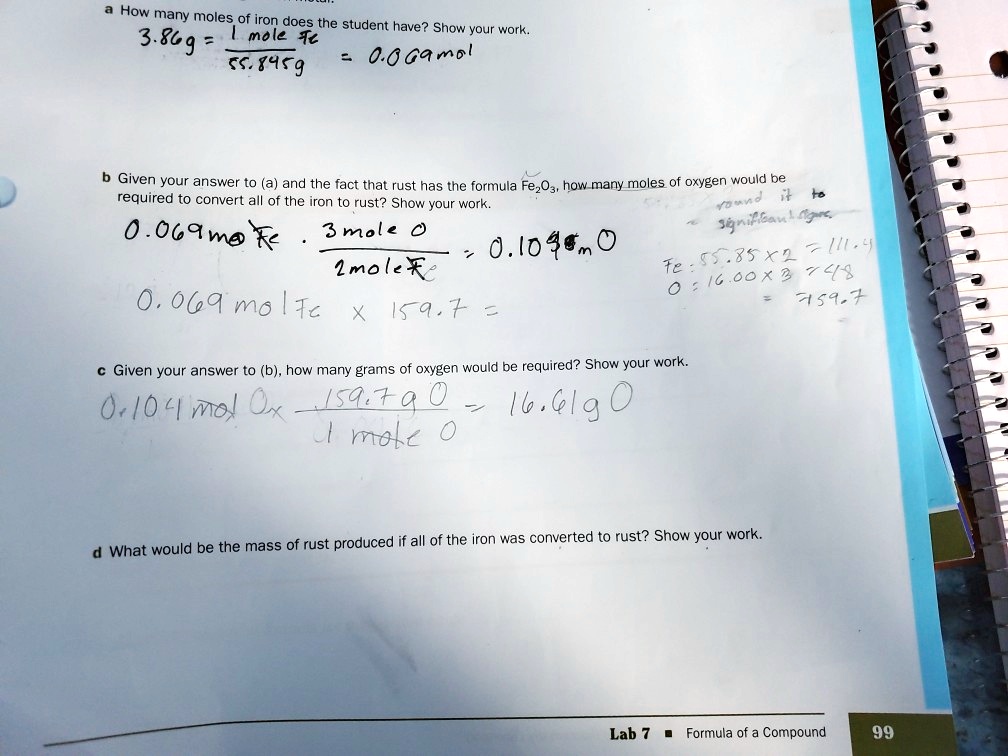 a How many moles of iron does the student have? Show your work.
3.86g = 1 mole Fe
55.845g
= 0.069mol
b Given your answer to (a) and the fact that rust has the formula Fe₂O₃, how many moles of oxygen would be
required to convert all of the iron to rust? Show your work.
round it to
significant figure
0.069mo Fe · 3 mole O
2mole Fe
= 0.10 m O
Fe: 55.85 x 2 = 111.4
O : 16.00 x 3 = 48
= 159.7
0.069 mol Fe x 159.7 =
c Given your answer to (b), how many grams of oxygen would be required? Show your work.
0.104 mol O x 159.7 g O
1 mole O
= 16.61g O
d What would be the mass of rust produced if all of the iron was converted to rust? Show your work.
Lab 7 ■ Formula of a Compound 99